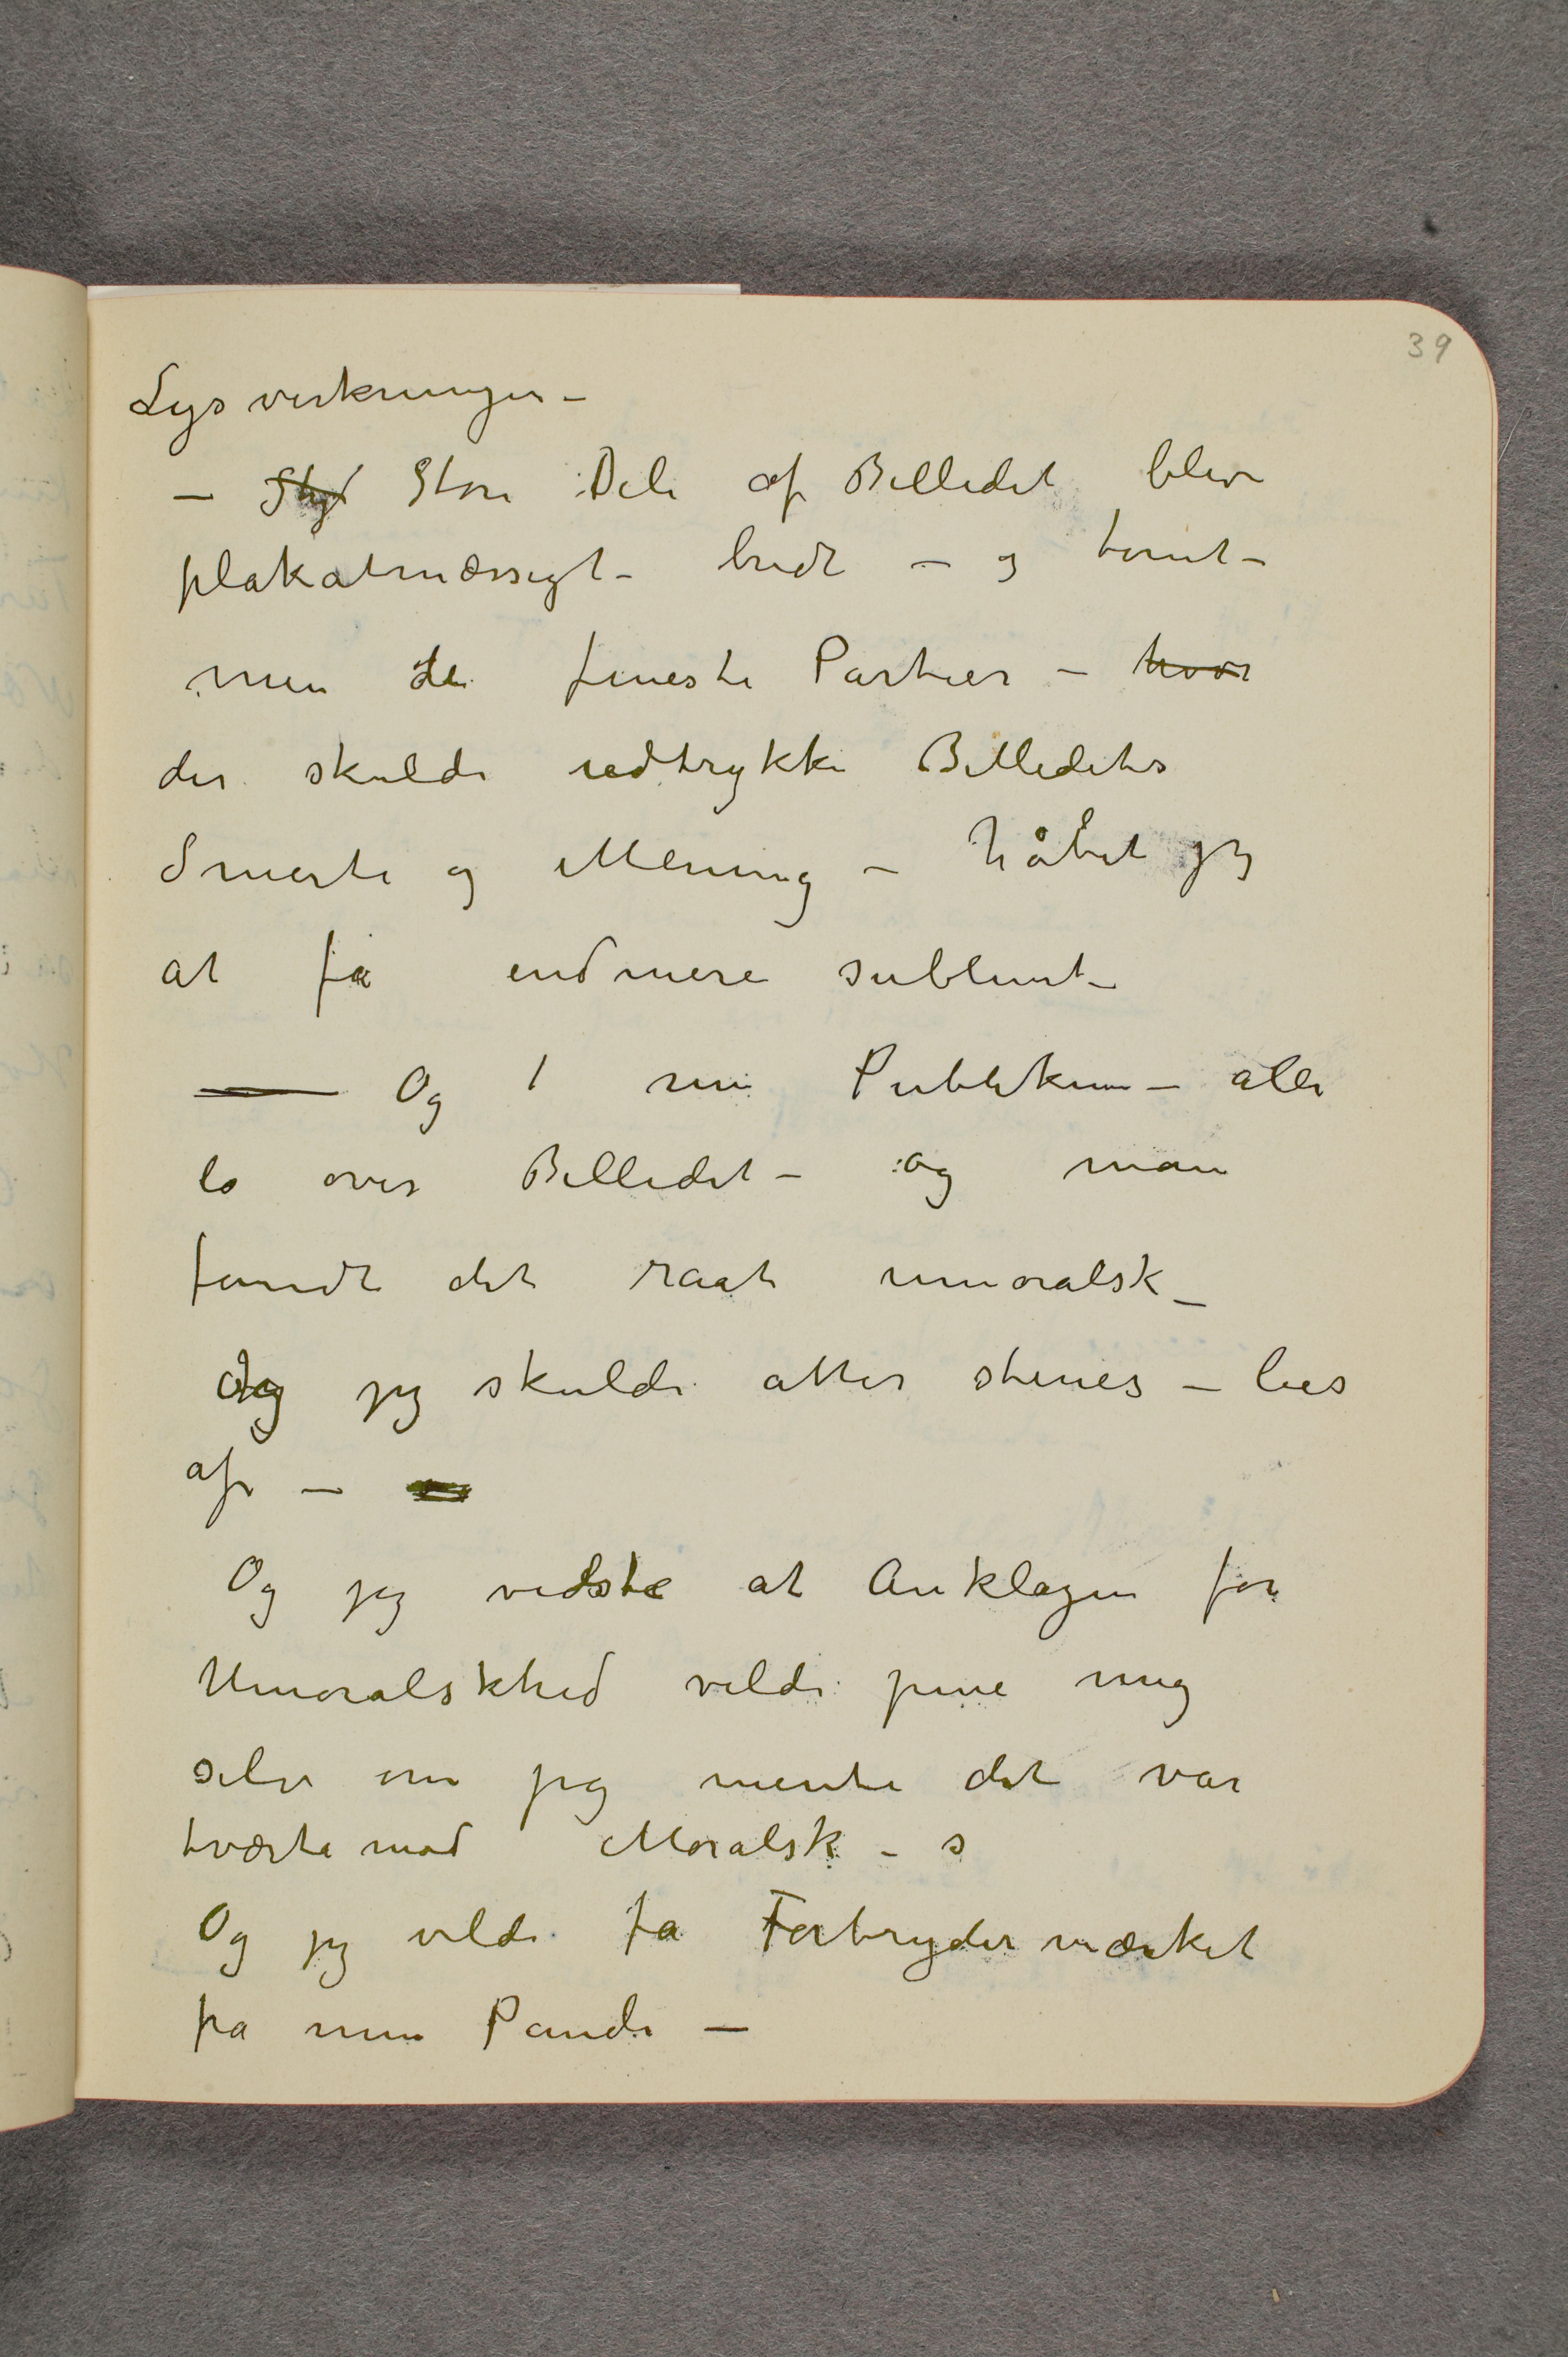 39
Lysvirkninger –
– Styd Store Dele af Billedet blev
plakatmæssigt – bredt – og tomt –
men de fineste Partier – hvor
der skulde udtrykke Billedets
Smerte og Mening – håbet jeg
at få endmere sublimt –
– Og nu Publikum – alle
lo over Billedet – og man
fandt det raat umoralsk –
Og jeg skulde atter stenes – lees
af –
Og jeg vidste at Anklagen for
Umoralskhed vilde pine mig
selv om jeg mente det var
tværtemod Moralsk – s
Og jeg vilde få Forbrydermærket
på min Pande –